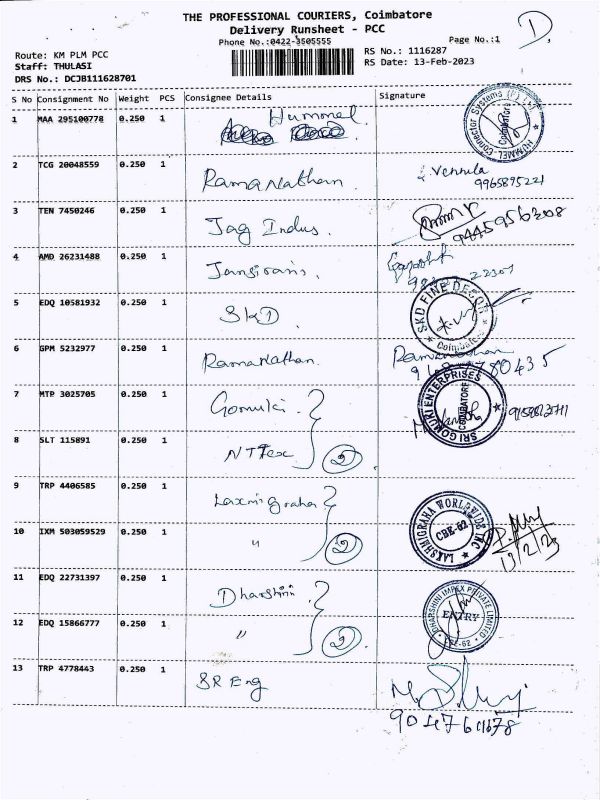 THE PROFESSIONAL COURIERS, Coimbatore
Delivery Runsheet - PCC
Phone No.:0422-3505555
Page No.:1
D,
Route: KM PLM PCC
Staff: THULASI
DRS No.: DCJB111628701
RS No.: 1116287
RS Date: 13-Feb-2023
S No Consignment No Weight PCS Consignee Details Signature
1 MAA 295100778 0.250 1 Hummel
HUMMEL-Connector Systems (P) Ltd Coimbatore
2 TCG 20048559 0.250 1 Ramanathan
Vennila
9965895221
3 TEN 7450246 0.250 1 Jag Indus.
9445956308
4 AMD 26231488 0.250 1
22307
5 EDQ 10581932 0.250 1 SKD
SKD FINE DECOR Coimbatore
6 GPM 5232977 0.250 1 Ramanathan.
Ramanathan
780435
7 MTP 3025705 0.250 1 Gomuki
SRI GOMUKI ENTERPRISES COIMBATORE
8 SLT 115891 0.250 1 NTTex
2
9 TRP 4406585 0.250 1 Laxmi Graha
LAKSHMIGRAHA WORLDWIDE INC CBE-62
10 IXM 503059529 0.250 1 "
2
13/2/23
11 EDQ 22731397 0.250 1 Dharshini
DHARSHINI IMPEX PRIVATE LIMITED ENTRY
12 EDQ 15866777 0.250 1 "
2
13 TRP 4778443 0.250 1 SR Eng